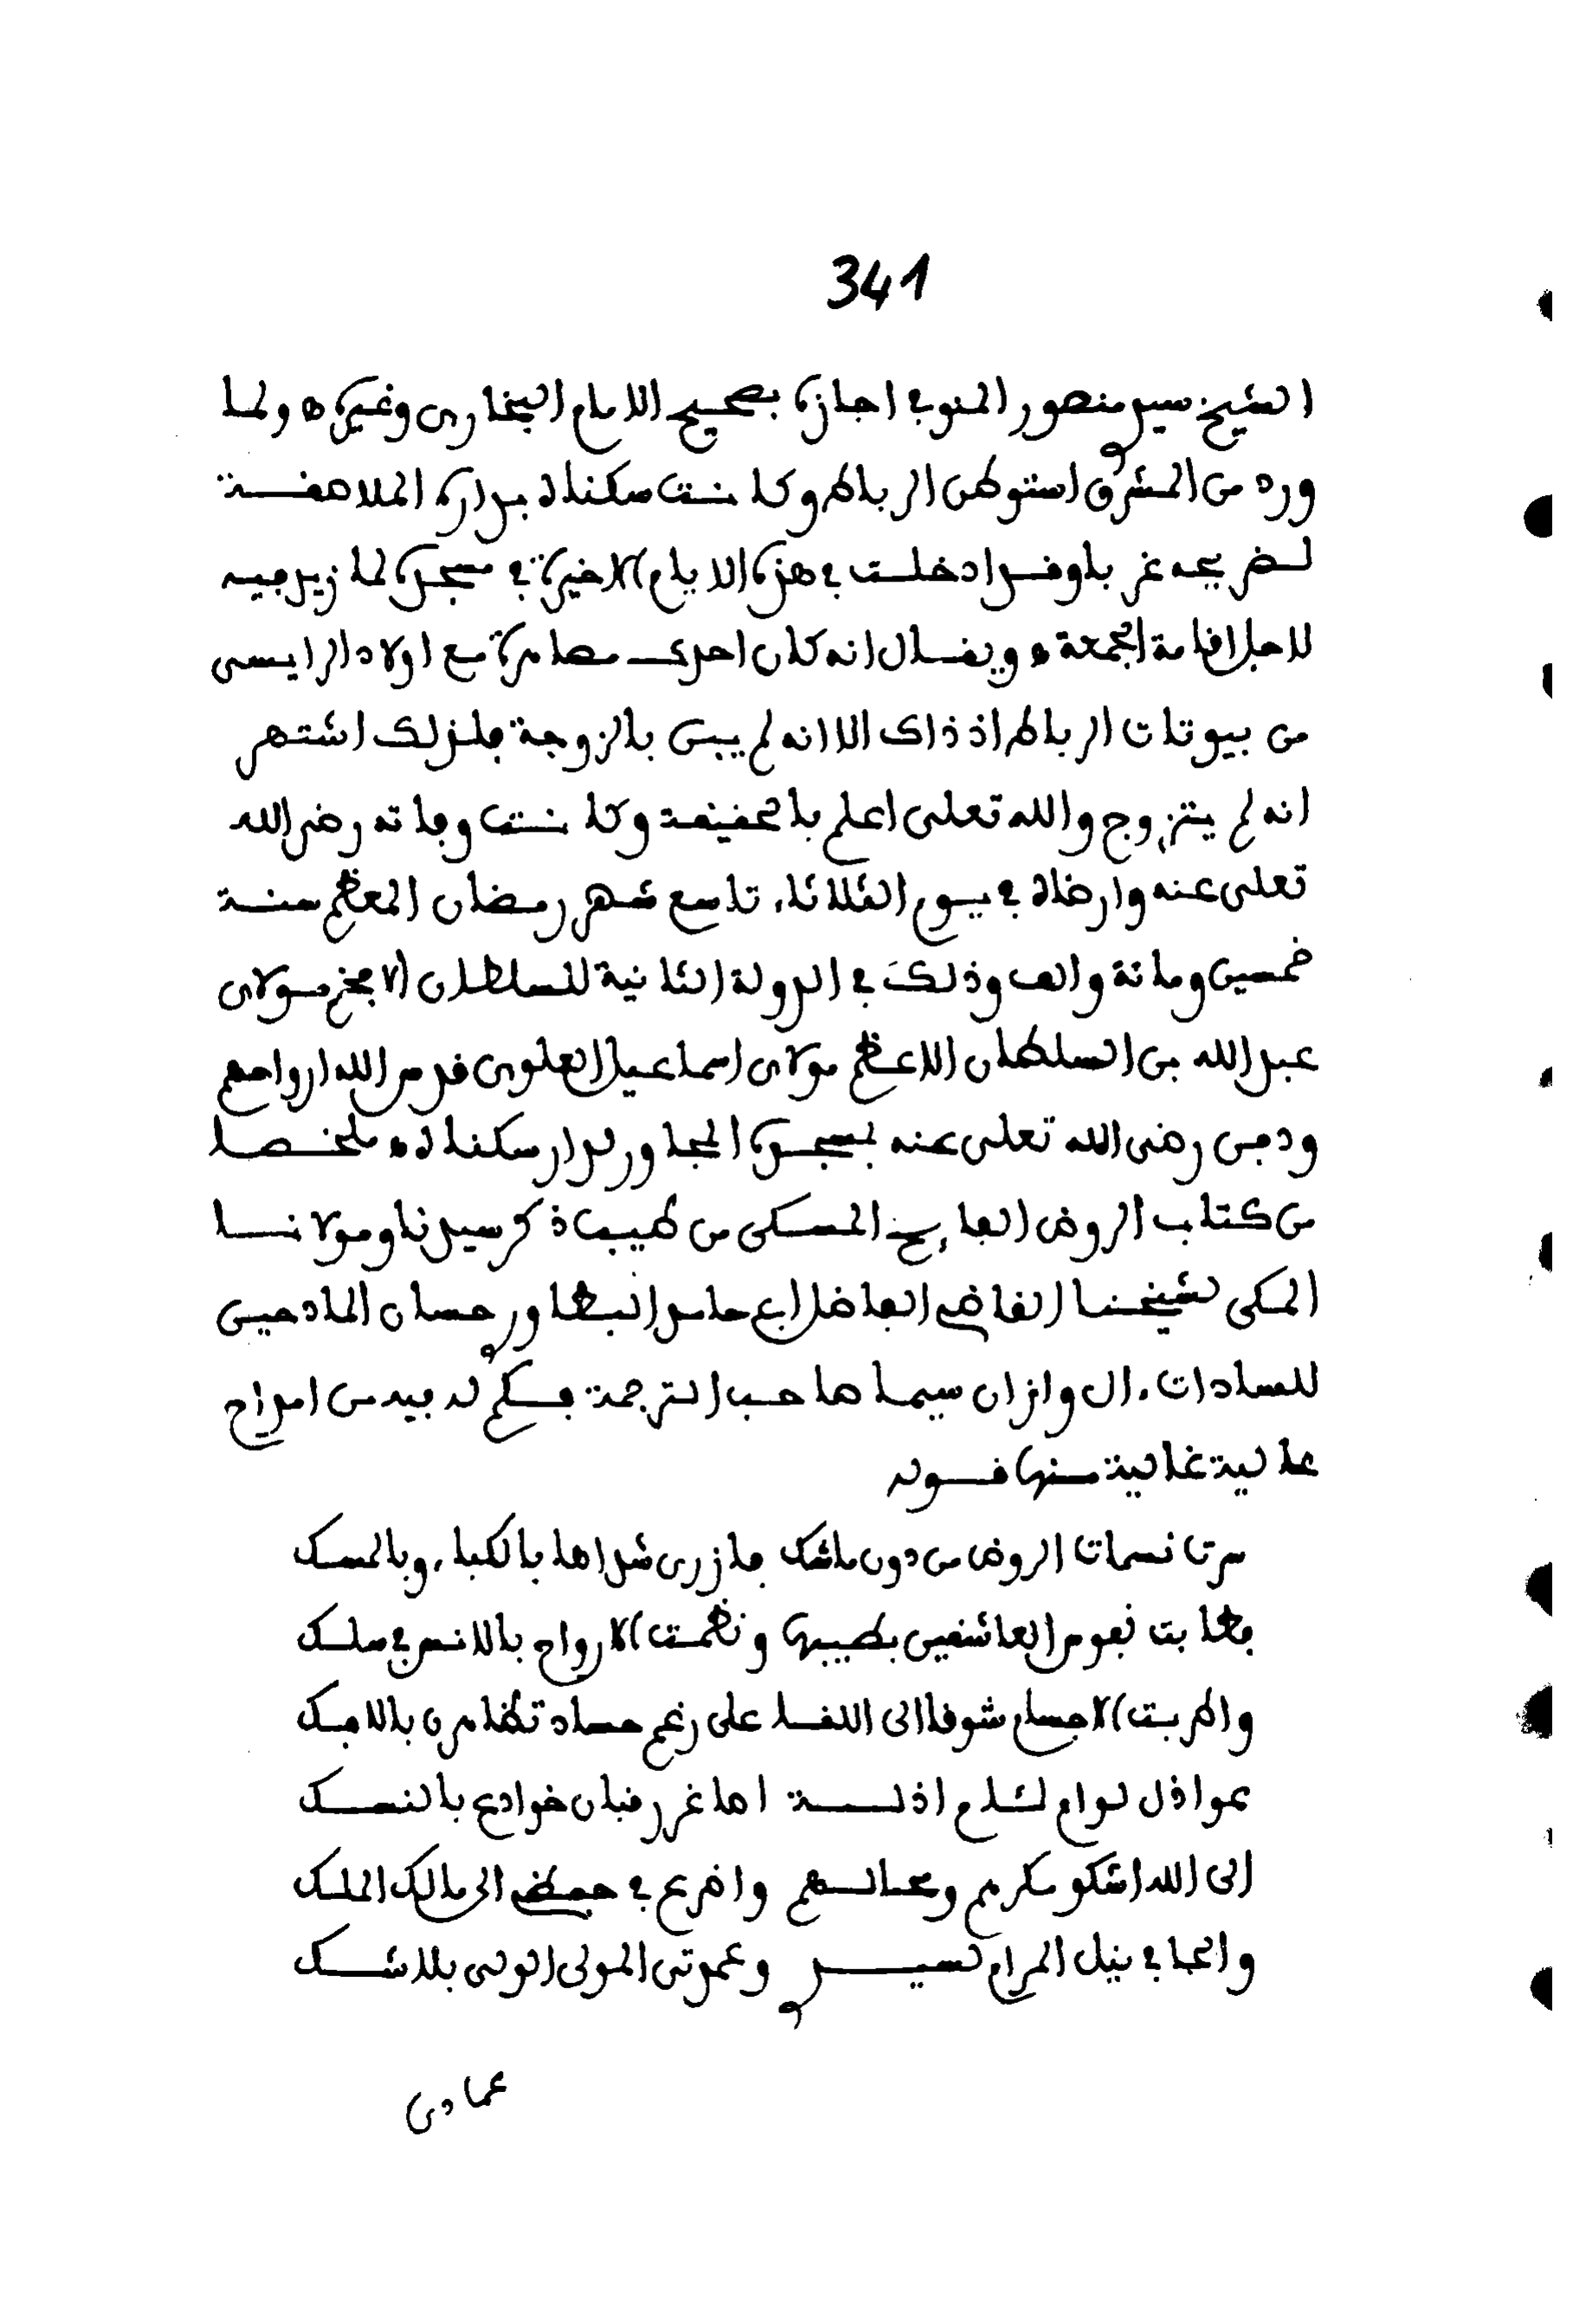 341
الشيخ سيد منصور المنوفي اجازه بصحيح الامام البخاري وغيره ه ولما
ورد من المشرق استوطن الرباط وكانت سكناه بداره الملاصقة
لضريحه غربا وقد ادخلت في هذه الايام الاخيرة في مسجده لما زيد فيه
لاجل اقامة الجمعة ه ويقال انه كان احدى مصاهرة مع اولاد الرايس
من بيوتات الرباط اذ ذاك الا انه لم يبن بالزوجة فلذلك اشتهر
انه لم يتزوج والله تعلى اعلم بالحقيقة وكانت وفاته رضي الله
تعلى عنه وارضاه في يوم الثلاثاء تاسع شهر رمضان المعظم سنة
خمسين ومائة والف وذلك في الدولة الثانية للسلطان الافخم مولاي
عبد الله بن السلطان الاعظم مولاي اسماعيل العلوي قدس الله ارواحهم
ودفن رضي الله تعلى عنه بمسجده المجاور لدار سكناه ه ملخصا
من كتاب الروض الفايح المسكى من طيب ذكر سيدنا ومولانا
المكى لشيخنا القاضي الفاضل ابي حامد البطاوري حسان المادحين
للسادات ال وازان سيما صاحب الترجمة فكم له فيه من امداح
عالية غالية منها قوله
سرت نسمات الروض من دون ماشك فازرى شداها بالكباء وبالمسك
فطابت نفوس العاشقين بطيبها ونظمت الارواح بالانس في سلك
واطربت الاجسام شوقا الى اللقا على رغم حساد تظاهرن بالافك
عواذل لوام لئام اذلة اما غر رقبان خوادع بالنسك
الى الله اشكو مكرهم ومحالهم واضرع في حفظي الى مالك الملك
والجا في نيل المرام لسيدي وعمدتي المولى الولي بلا شك
عمادي